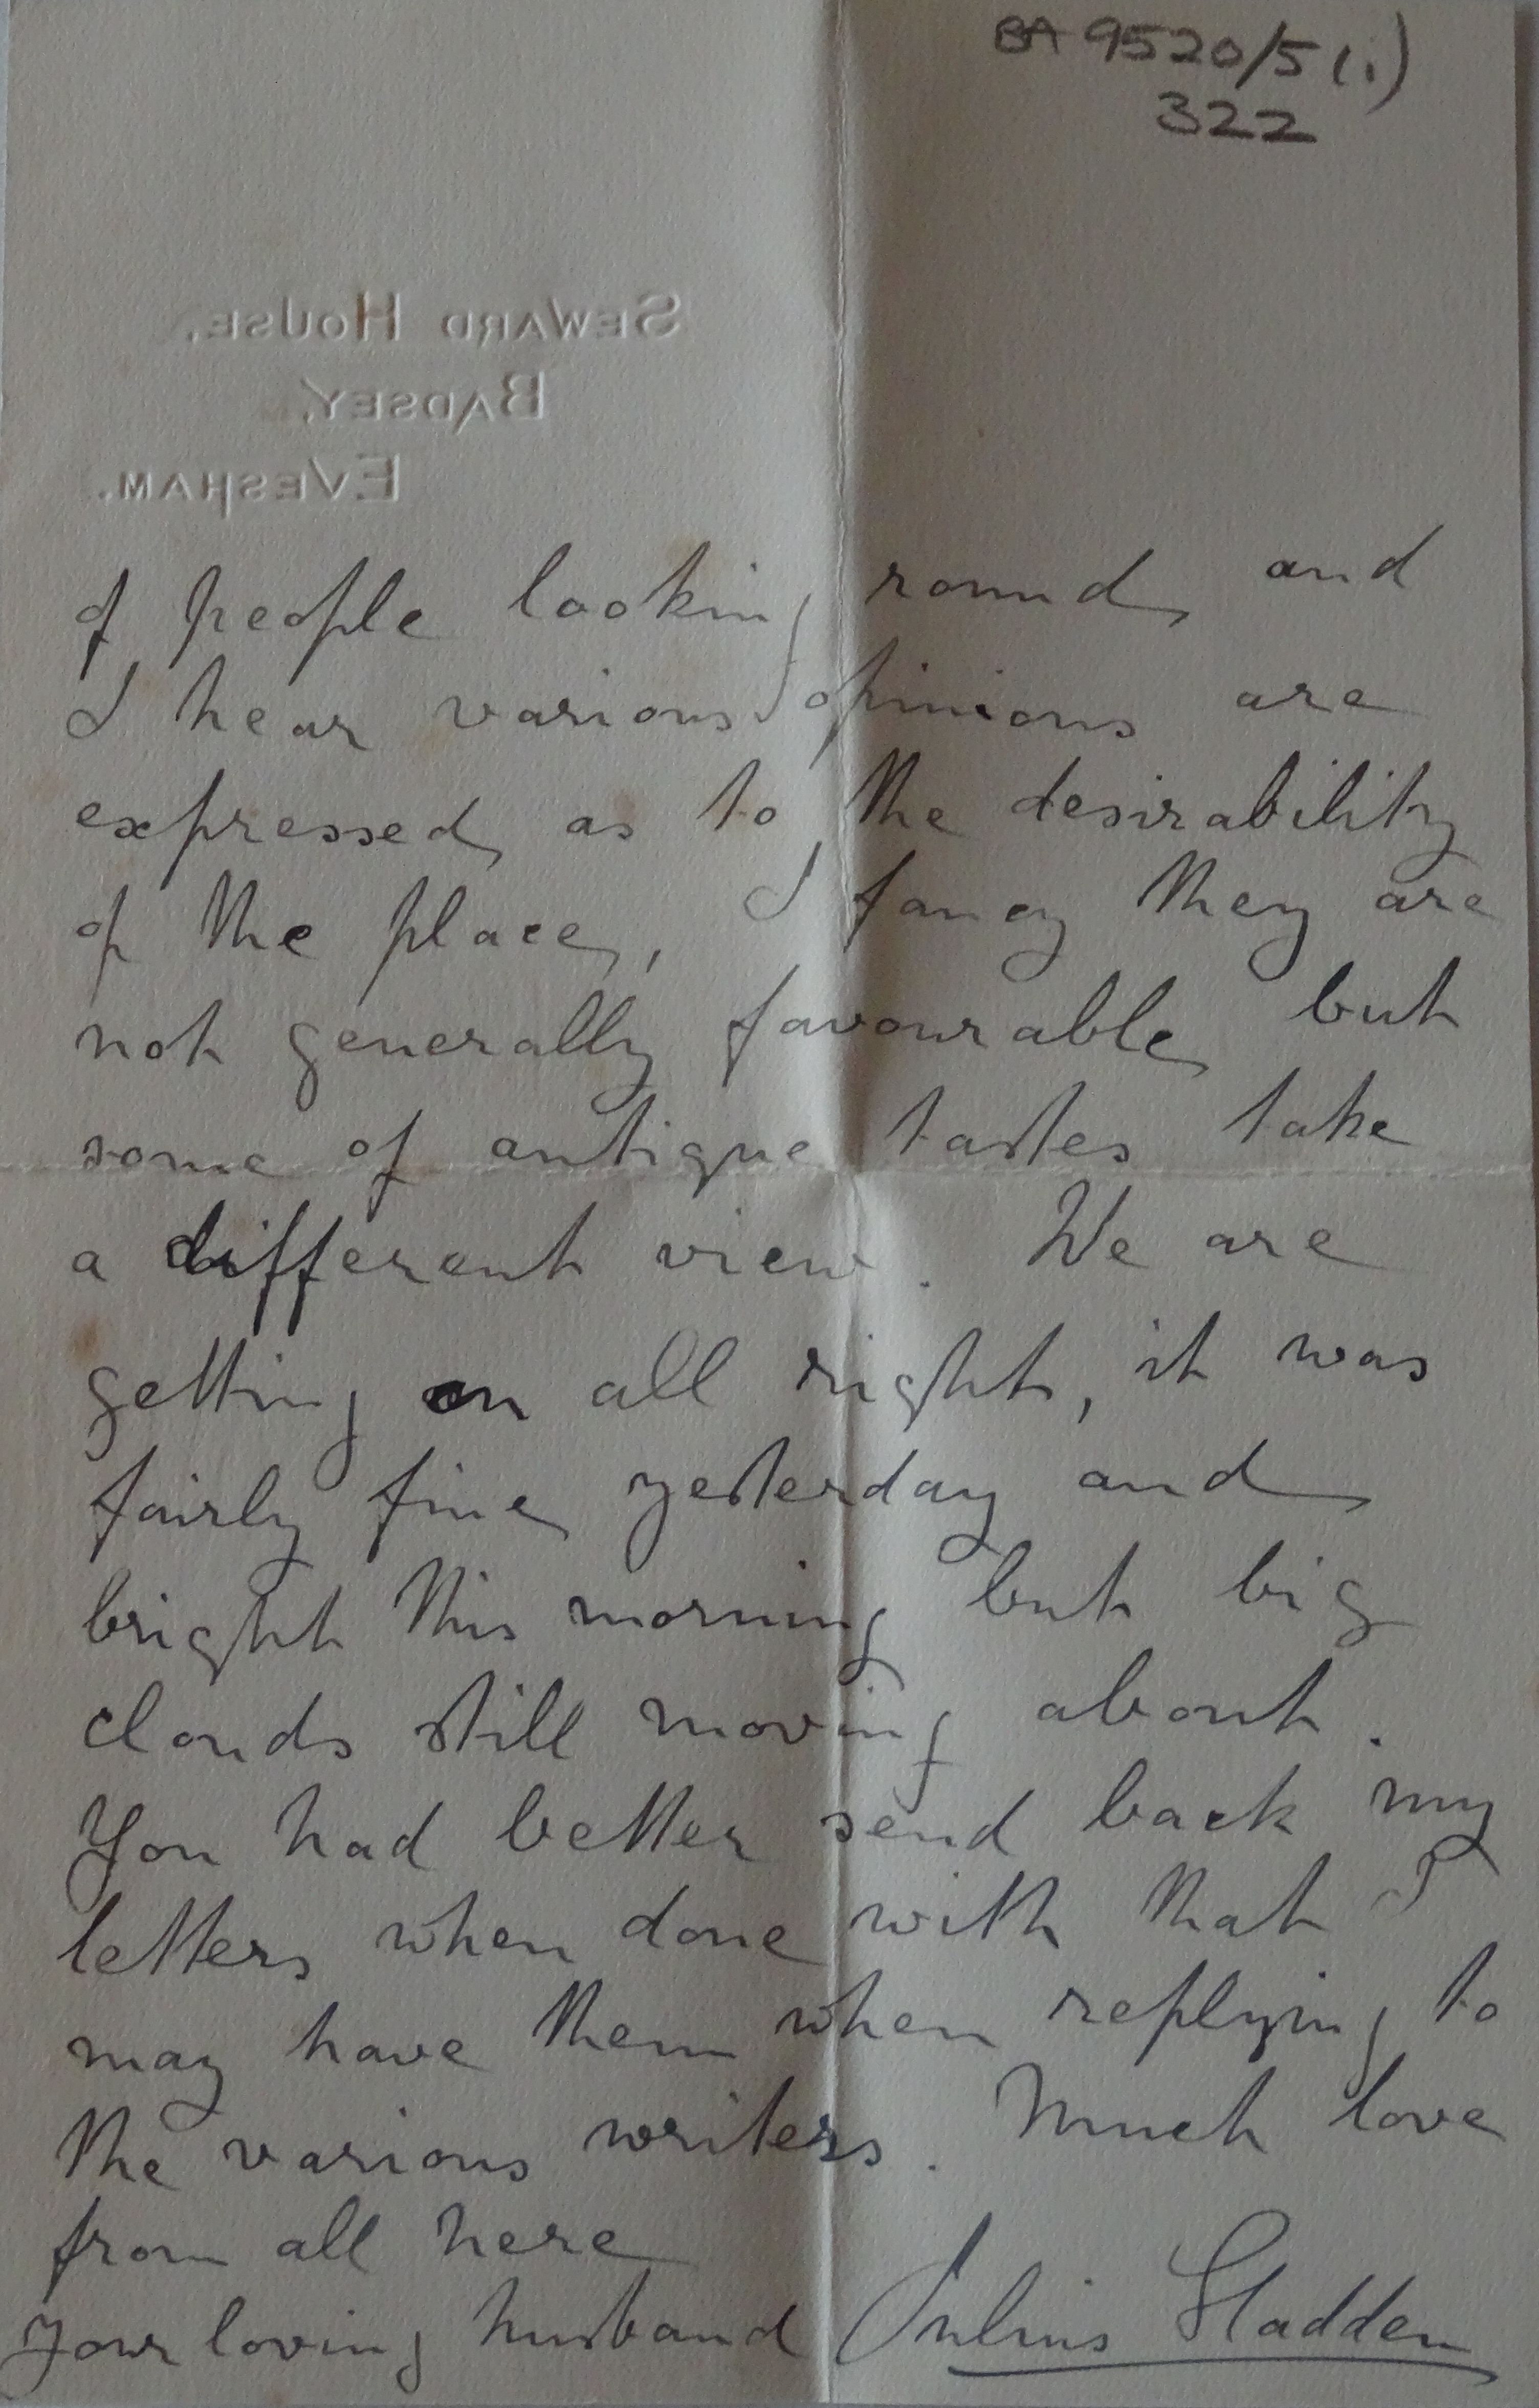 BA 9520/5(i)
322
SEWARD HOUSE,
BADSEY,
EVESHAM.
of people looking round and
I hear various opinions are
expressed as to the desirability
of the place, I fancy they are
not generally favourable but
some of antique tastes take
a different view. We are
getting on all right, it was
fairly fine yesterday and
bright this morning but big
clouds still moving about.
You had better send back my
letters when done with that I
may have them when replying to
the various writers. Much love
from all here
Your loving husband Julius Sladden